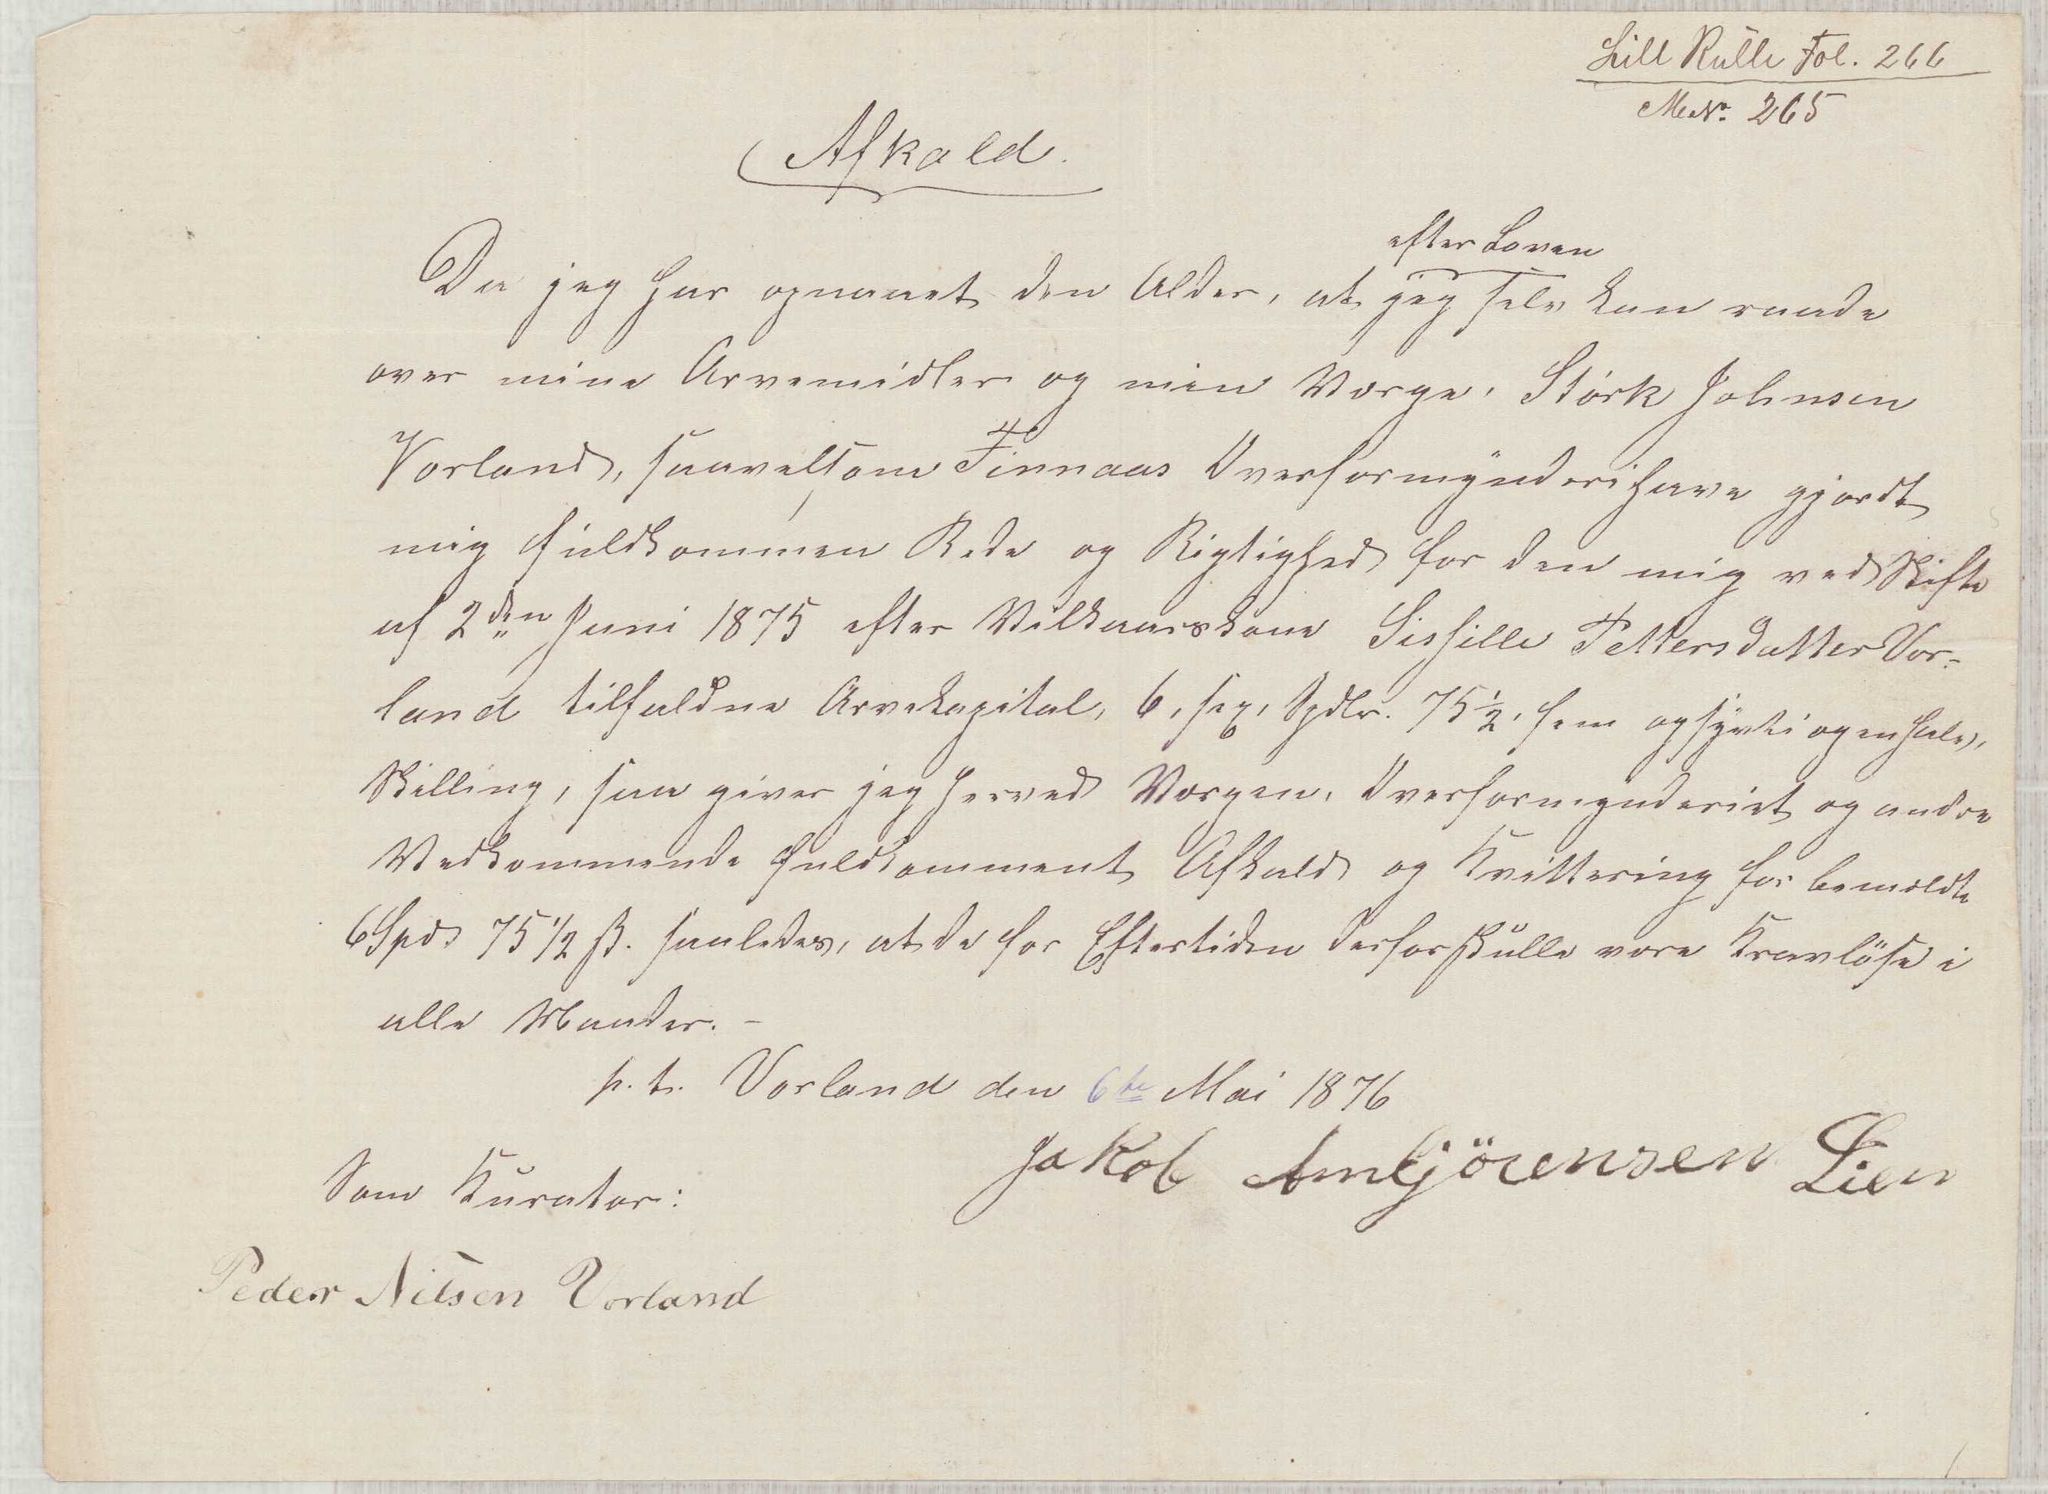 Lill Rulle Fol. 266
M№. 265
Afkald.
efter Loven
Da jeg har opnaaet den Alder, at jeg selv kan raade
over mine Arvemidler og min Værge, Størk Johnsen
Vorland, saavelsom Finnaas Overformynderi have gjordt
mig fuldkommen Rede og Rigtighed for den mig ved Skifte
af 2den Juni 1875 efter Vilkaarskone Sissille Pettersdatter Vor-
land tilfaldne Arvekapital, 6, sex, Spdlr. 75½, fem og syvti og en halv,
Skilling, saa giver jeg herved Værgen, Overformynderiet og andre
Vedkommende fuldkomment Afkald og Kvittering for bemeldte
6 Spd 75 1/2 ß. saaledes, at de for Eftertiden derfor skulle være Kravløse i
alle Maader. -
p. t. Vorland den 6te Mai 1876
Jakob Ambjörensen Lien
Som Kurator:
Peder Nilsen Vorland